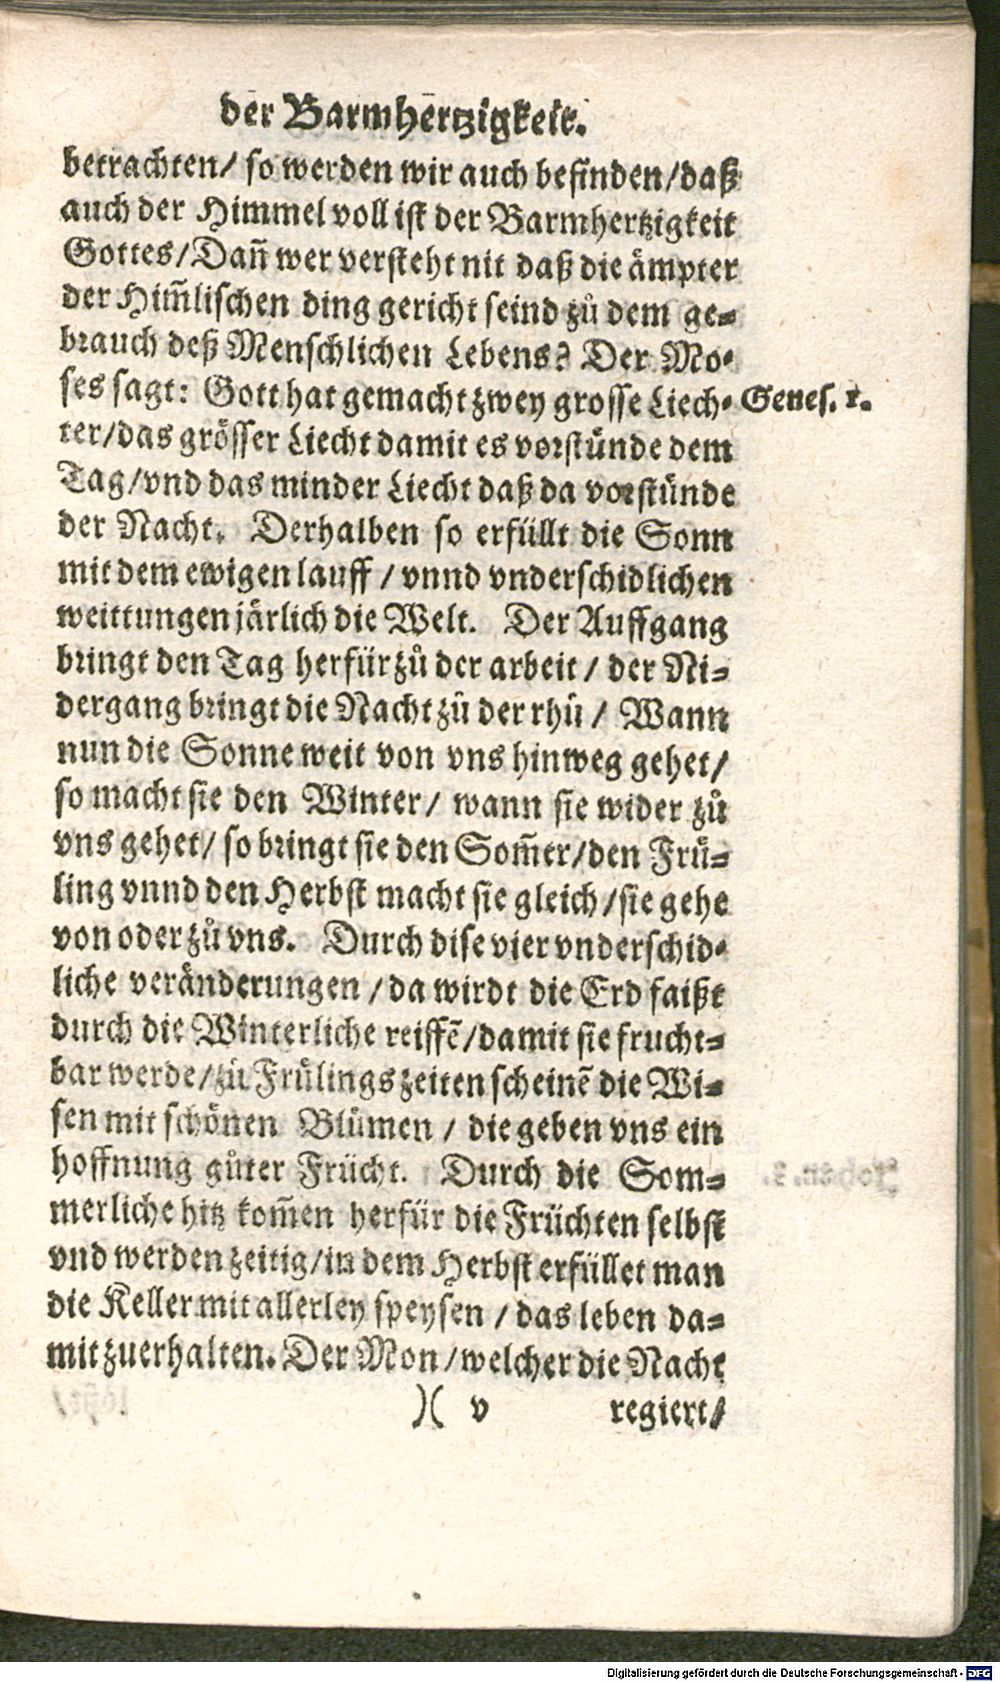 der Barmhertzigkeit.
betrachten/ so werden wir auch befinden/daß
auch der Himmel voll ist der Barmhertzigkeit
Gottes/Dañ wer versteht nit daß die ämpter
der Him̃lischen ding gericht seind zů dem ge-
brauch deß Menschlichen Lebens? Der Mo-
ses sagt: Gott hat gemacht zwey grosse Liech- Genes. 1.
ter/das grösser Liecht damit es vorstünde dem
Tag/vnd das minder Liecht daß da vorstünde
der Nacht. Derhalben so erfüllt die Sonn
mit dem ewigen lauff / vnnd vnderschidlichen
weittungen järlich die Welt. Der Auffgang
bringt den Tag herfür zů der arbeit / der Ni-
dergang bringt die Nacht zů der rhů / Wann
nun die Sonne weit von vns hinweg gehet/
so macht sie den Winter/ wann sie wider zů
vns gehet/ so bringt sie den Som̃er/den Frü-
ling vnnd den Herbst macht sie gleich/sie gehe
von oder zů vns. Durch dise vier vnderschid-
liche veränderungen /da wirdt die Erd faißt
durch die Winterliche reiffẽ/damit sie frucht-
bar werde/zů Frülings zeiten scheinẽ die Wi-
sen mit schönen Blůmen / die geben vns ein
hoffnung gůter Frücht. Durch die Som-
merliche hitz kom̃en herfür die Früchten selbst
vnd werden zeitig/in dem Herbst erfüllet man
die Keller mit allerley speysen / das leben da-
mit zuerhalten. Der Mon/welcher die Nacht
)( v regiert/
Digitalisierung gefördert durch die Deutsche Forschungsgemeinschaft - DFG